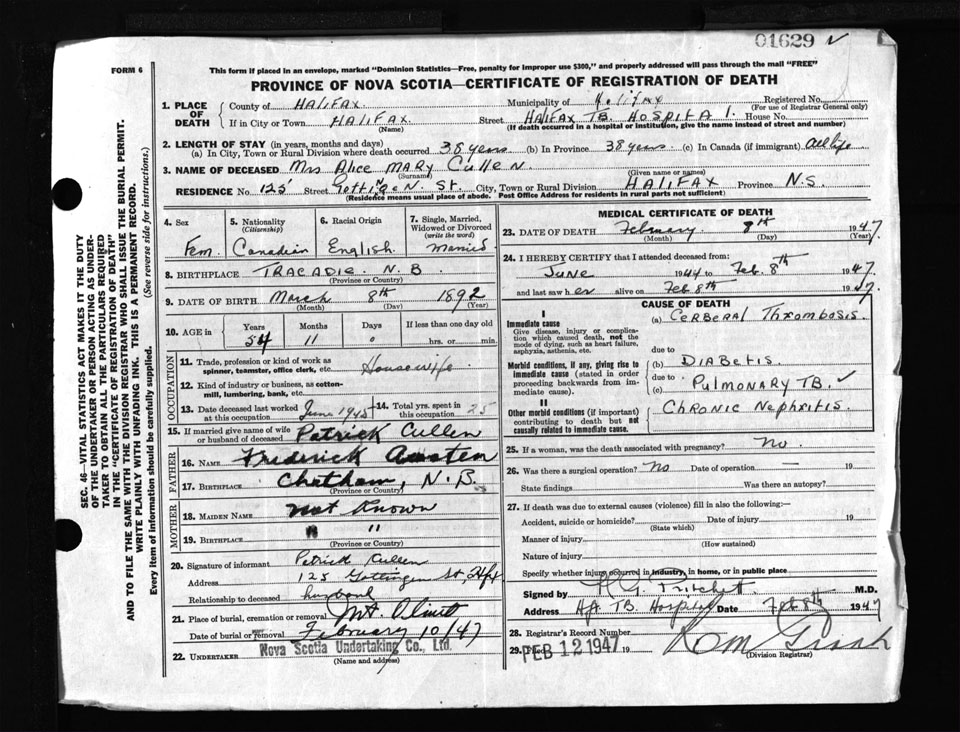 01629
FORM 6
This form if placed in an envelope, marked "Dominion Statistics—Free, penalty for improper use $300," and properly addressed will pass through the mail "FREE"
PROVINCE OF NOVA SCOTIA—CERTIFICATE OF REGISTRATION OF DEATH
1. PLACE OF DEATH County of HALIFAX. Municipality of Halifax Registered No.
(For use of Registrar General only)
If in City or Town HALIFAX. Street HALIFAX TB. HOSPITAL. House No.
(Name) (If death occurred in a hospital or institution, give the name instead of street and number)
2. LENGTH OF STAY (in years, months and days)
(a) In City, Town or Rural Division where death occurred 38 years (b) In Province 38 years. (c) In Canada (if immigrant) All life
3. NAME OF DECEASED Mrs Alice MARY Cullen
(Surname) (Given name or names)
RESIDENCE No. 125 Street Gottigen St. City, Town or Rural Division HALIFAX Province N.S.
(Residence means usual place of abode. Post Office Address for residents in rural parts not sufficient)
4. Sex 5. Nationality (Citizenship) 6. Racial Origin 7. Single, Married, Widowed or Divorced (write the word)
Fem. Canadian English. Married
8. BIRTHPLACE TRACADIE. N.B.
(Province or Country)
9. DATE OF BIRTH March 8th 1892
(Month) (Day) (Year)
10. AGE in Years Months Days If less than one day old
54 11 0 hrs. or min.
OCCUPATION
11. Trade, profession or kind of work as spinner, teamster, office clerk, etc. Housewife.
12. Kind of industry or business, as cotton-mill, lumbering, bank, etc.
13. Date deceased last worked at this occupation June 1945 14. Total yrs. spent in this occupation 25
15. If married give name of wife or husband of deceased Patrick Cullen
FATHER
16. NAME Frederick Austen
17. BIRTHPLACE Chatham, N.B.
(Province or Country)
MOTHER
18. MAIDEN NAME Not Known
19. BIRTHPLACE " "
(Province or Country)
20. Signature of informant Patrick Cullen
Address 125 Gottingen St, Hfx
Relationship to deceased husband
21. Place of burial, cremation or removal Mt. Olivet
Date of burial or removal February 10/47
22. UNDERTAKER Nova Scotia Undertaking Co., Ltd.
(Name and address)
MEDICAL CERTIFICATE OF DEATH
23. DATE OF DEATH February 8th 1947
(Month) (Day) (Year)
24. I HEREBY CERTIFY that I attended deceased from:
June 1944 to Feb. 8th 1947.
and last saw her alive on Feb 8th 1947.
CAUSE OF DEATH
I
Immediate cause (a) CERBERAL Thrombosis.
Give disease, injury or complication which caused death, not the mode of dying, such as heart failure, asphyxia, asthenia, etc.
due to
(b) DIABETIS.
Morbid conditions, if any, giving rise to immediate cause (stated in order proceeding backwards from immediate cause).
due to
(c) PULMONARY TB.
II
Other morbid conditions (if important) contributing to death but not causally related to immediate cause.
Chronic Nephritis.
25. If a woman, was the death associated with pregnancy? No.
26. Was there a surgical operation? No Date of operation — 19
State findings Was there an autopsy?
27. If death was due to external causes (violence) fill in also the following:—
Accident, suicide or homicide? Date of injury 19
(State which)
Manner of injury
(How sustained)
Nature of injury
Specify whether injury occurred in industry, in home, or in public place
Signed by H.G. Pritchett M.D.
Address Hfx TB. Hospital Date Feb 8th 1947
28. Registrar's Record Number
29. Filed FEB 12 1947 19
(Division Registrar)
SEC. 46—VITAL STATISTICS ACT MAKES IT THE DUTY
OF THE UNDERTAKER OR PERSON ACTING AS UNDER-
TAKER TO OBTAIN ALL THE PARTICULARS REQUIRED
IN THE "CERTIFICATE OF REGISTRATION OF DEATH"
AND TO FILE THE SAME WITH THE DIVISION REGISTRAR WHO SHALL ISSUE THE BURIAL PERMIT.
WRITE PLAINLY WITH UNFADING INK. THIS IS A PERMANENT RECORD.
Every item of information should be carefully supplied. (See reverse side for instructions.)